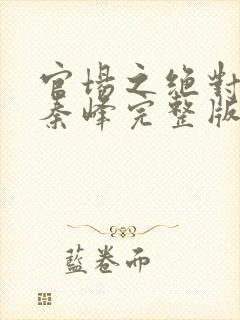 官場之絕對
秦峰完整版
藍卷而